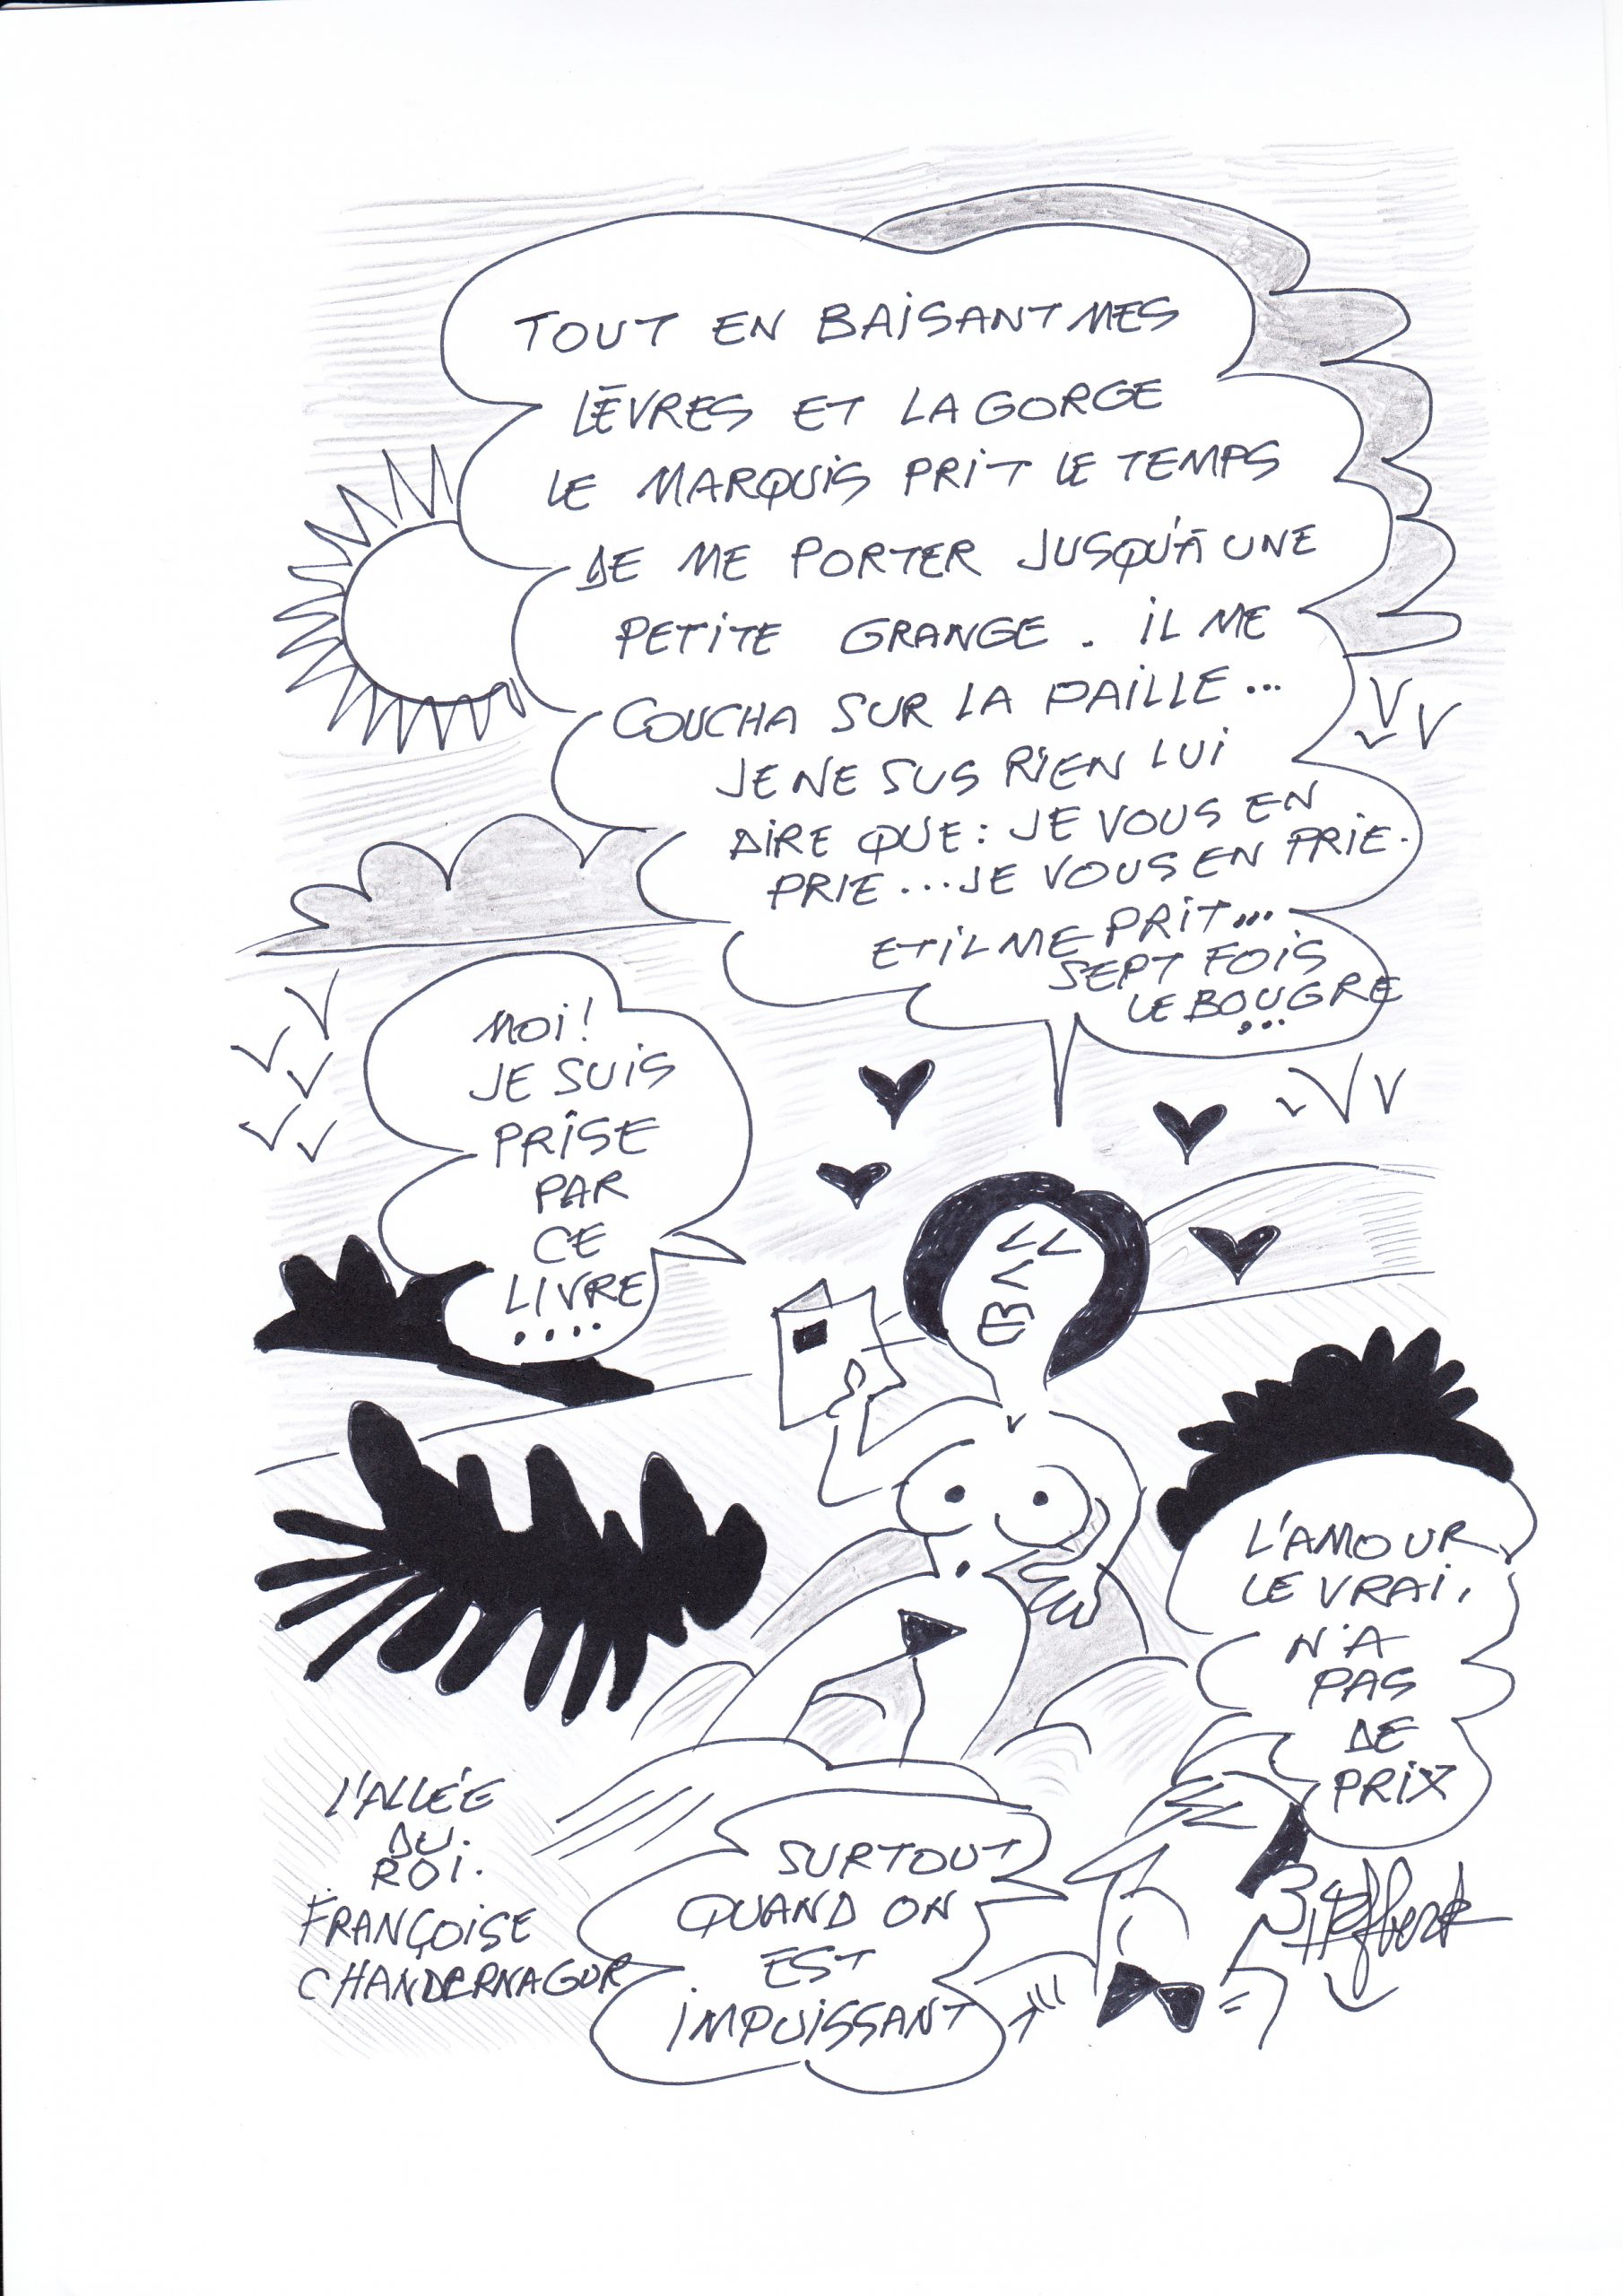 TOUT EN BAISANT MES
LÈVRES ET LA GORGE
LE MARQUIS PRIT LE TEMPS
DE ME PORTER JUSQU'À UNE
PETITE GRANGE. IL ME
COUCHA SUR LA PAILLE...
JE NE SUS RIEN LUI
DIRE QUE: JE VOUS EN
PRIE... JE VOUS EN PRIE.
ET IL ME PRIT...
SEPT FOIS
LE BOUGRE
...
MOI!
JE SUIS
PRISE
PAR
CE
LIVRE
....
L'AMOUR
LE VRAI,
N'A
PAS
DE
PRIX
SURTOUT
QUAND ON
EST
IMPUISSANT
L'ALLÉE
DU.
ROI.
FRANÇOISE
CHANDERNAGOR